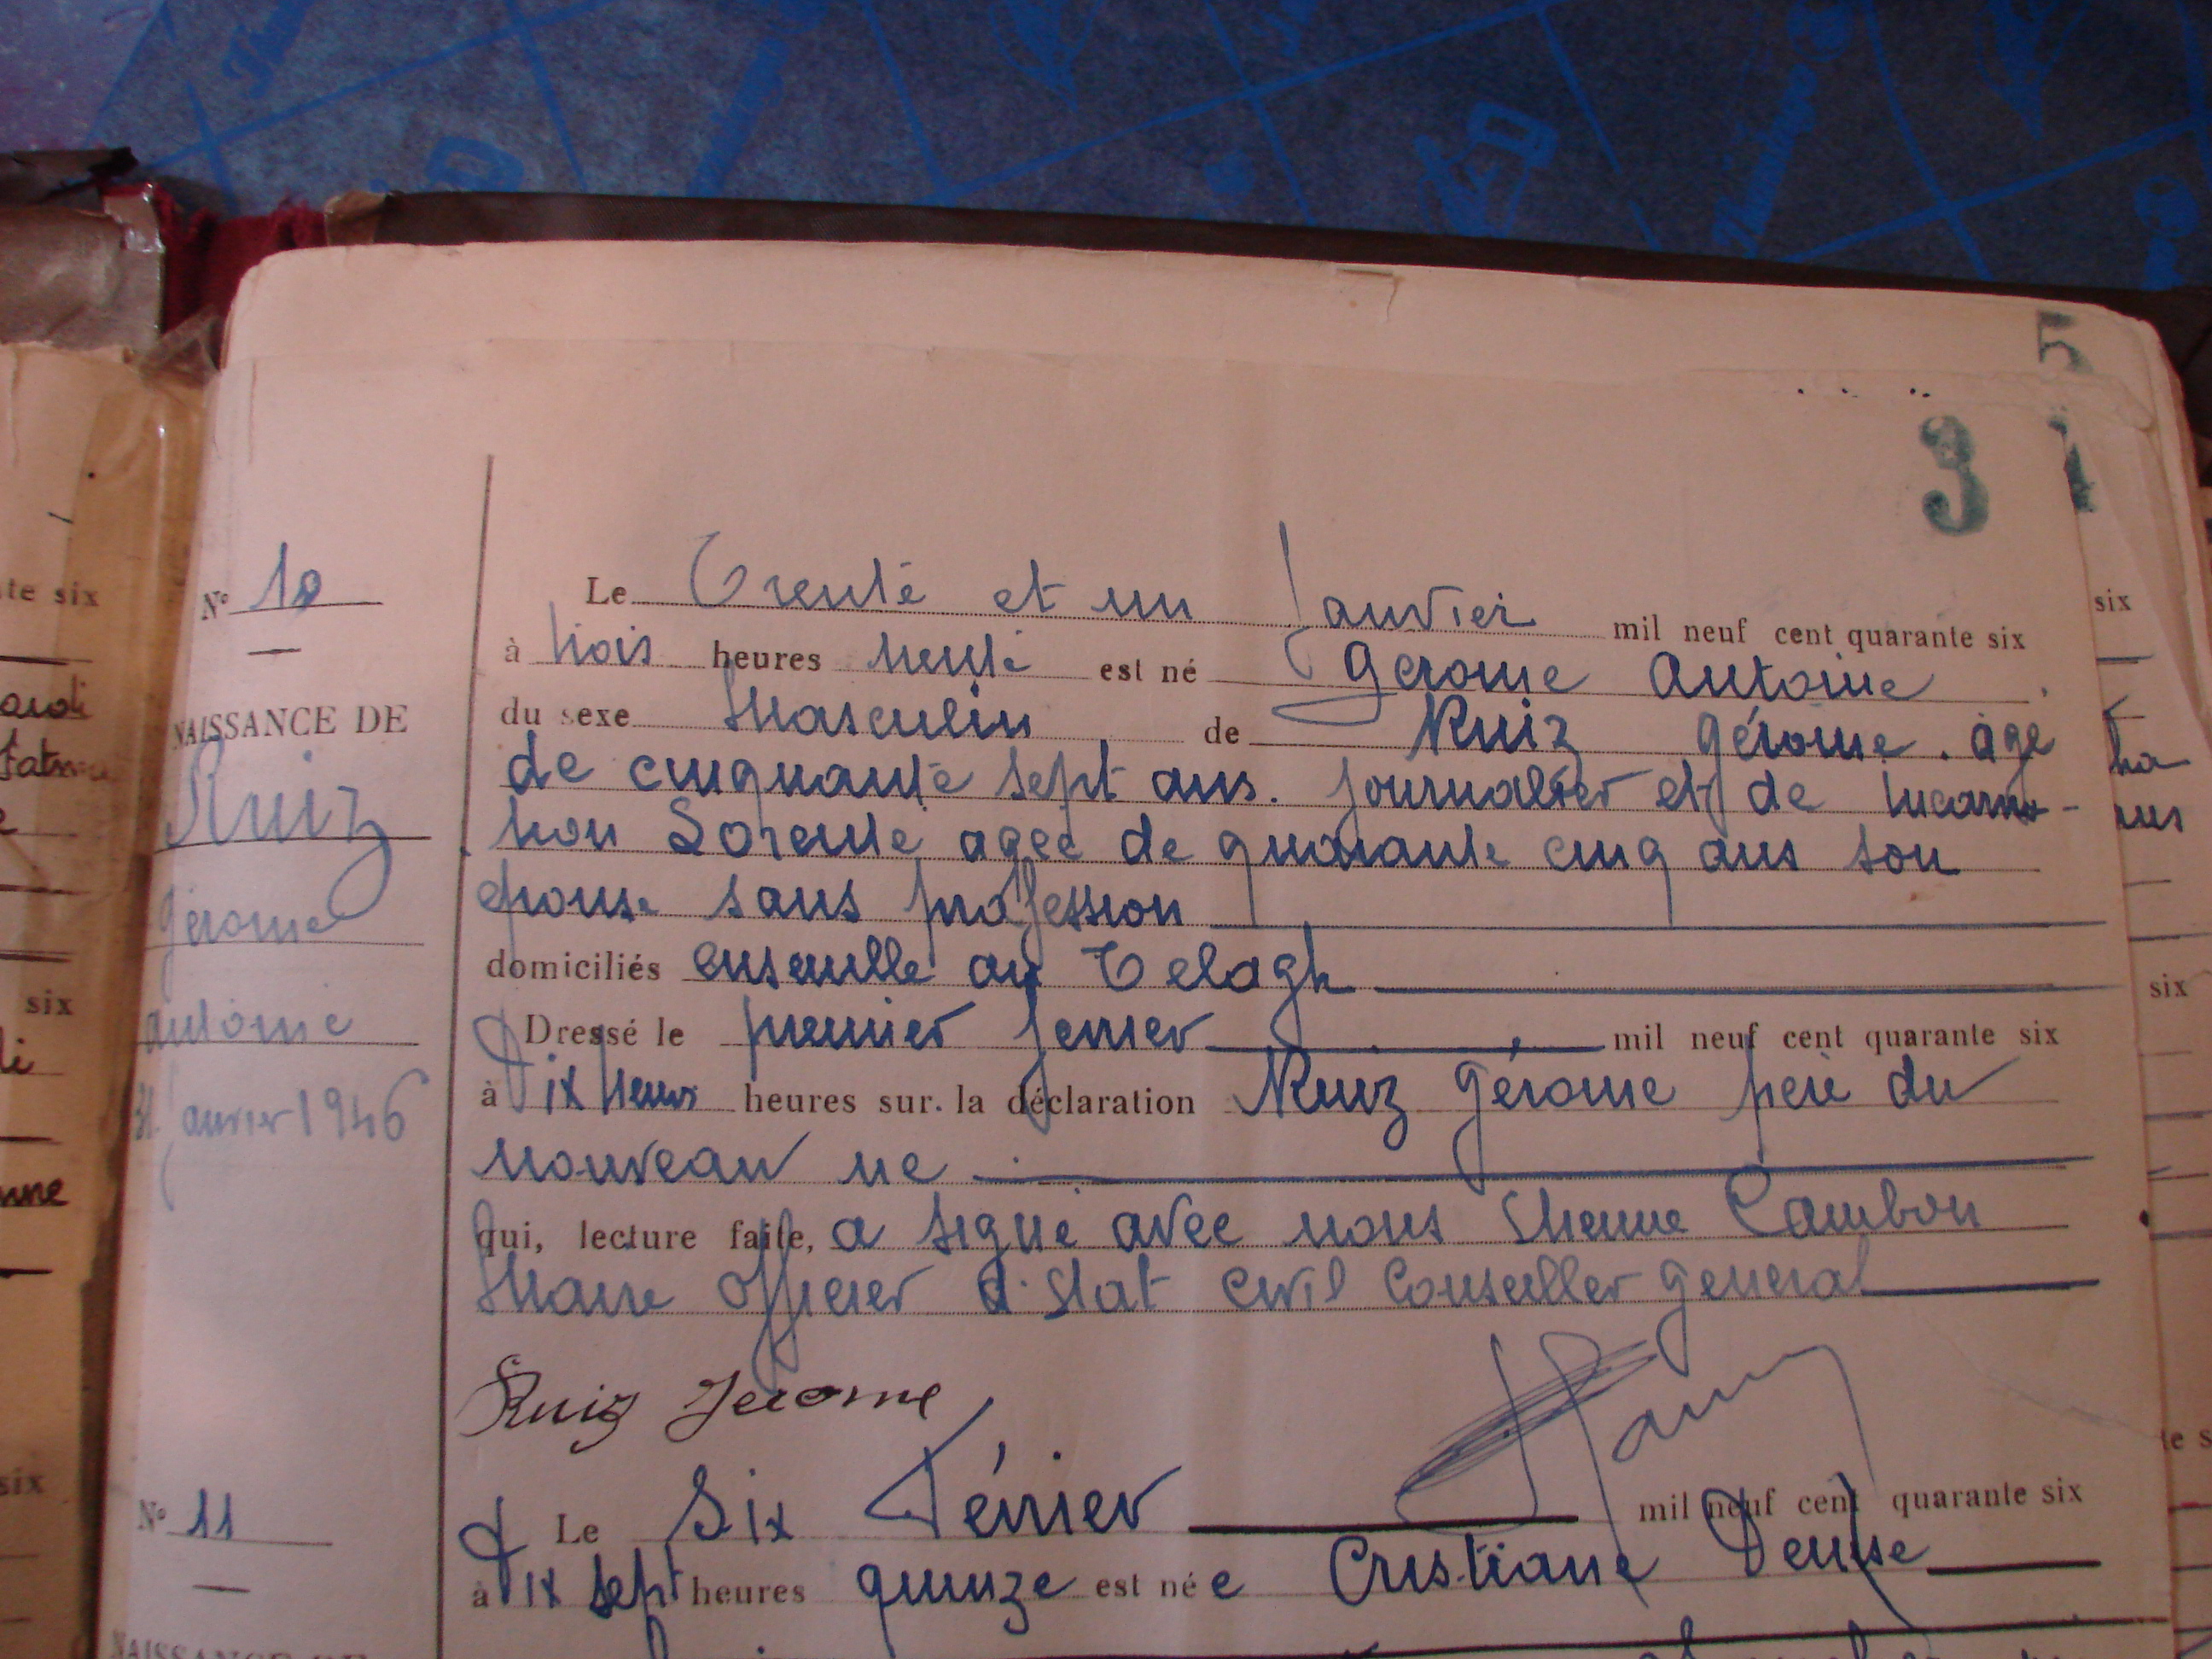 5
3
N° 10
Le Trente et un Janvier mil neuf cent quarante six
à trois heures trente est né Gérome Antoine
NAISSANCE DE
du sexe Masculin de Ruiz Gérôme. age
de cinquante sept ans. journalier et de Incarna-
Ruiz
tion Lorente agée de quarante cinq ans son
épouse sans profession
Gérome
domiciliés ensemble au Telagh
Antoine
Dressé le premier fevrier mil neuf cent quarante six
31 Janvier 1946
à Dix heures heures sur la déclaration Ruiz Gérome père du
nouveau né
qui, lecture faite, a signé avec nous Etienne Cambon
Maire officier d'Etat Civil Conseiller general
Ruiz Jerome
N° 11
Le Six Février mil neuf cent quarante six
à Dix sept heures quinze est née Cristiane Denise
NAISSANCE DE
te six
six
six
six